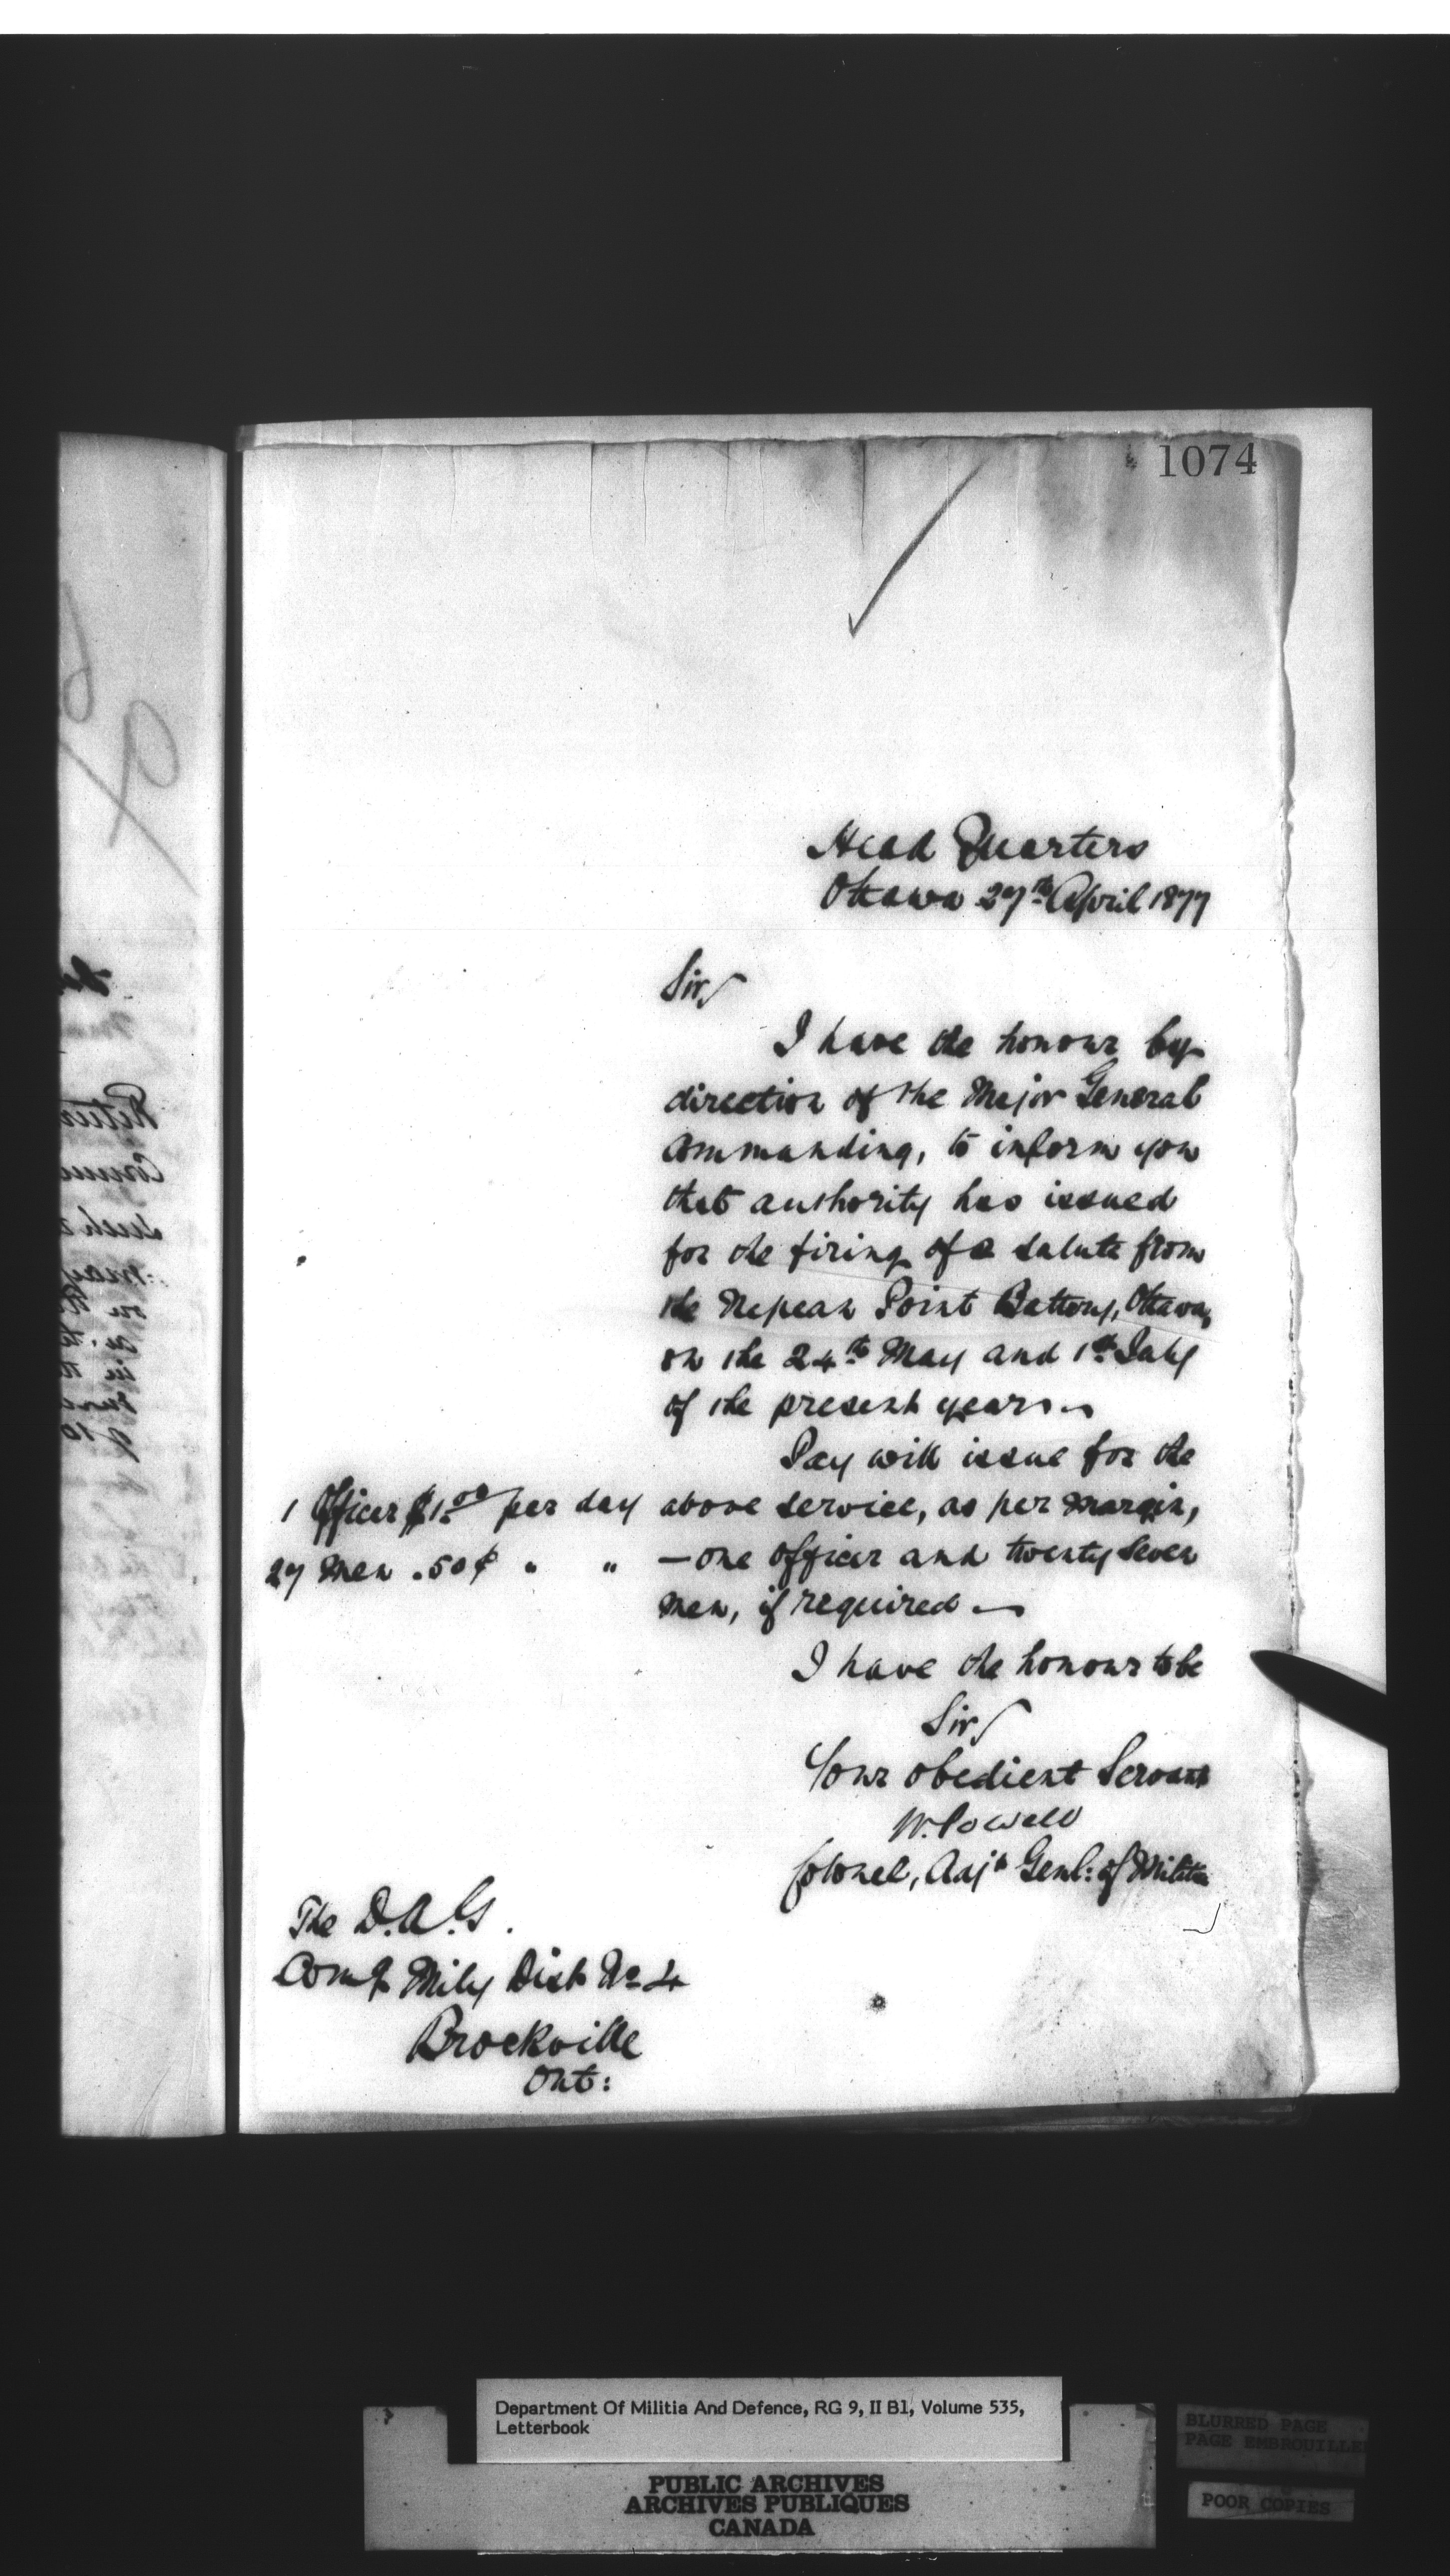 1074
Head Quarters
Ottawa 27th April 1877
Sir,
I have the honour by
direction of the Major General
Commanding, to inform you
that authority has issued
for the firing of a salute from
the Nepean Point Battery, Ottawa,
on the 24th May and 1st July
of the present year.
Pay will issue for the
1 Officer $1.00 per day above service, as per margin,
27 Men .50¢ " " — one officer and twenty seven
men, if required —
I have the honour to be
Sir,
Your obedient Servant
W. Powell
Colonel, Adjt Genl: of Militia
The D.A.G.
Comg Mily Dist No 4
Brockville
Ont:
Department Of Militia And Defence, RG 9, II B1, Volume 535,
Letterbook
PUBLIC ARCHIVES
ARCHIVES PUBLIQUES
CANADA
BLURRED PAGE
PAGE EMBROUILLEE
POOR COPIES